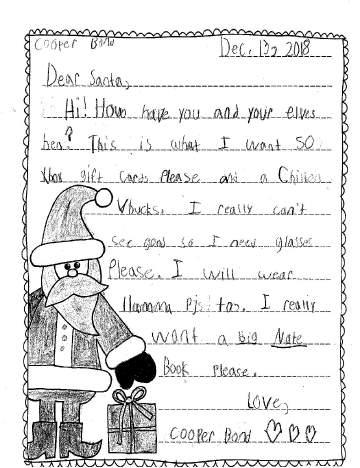 Cooper Bond
Dec. 13, 2018
Dear Santa,
Hi! How have you and your elves
ben? This is what I want 50
Xbox gift cards Please and a
Vbucks. I really can't
see good so I need glasses
Please. I will wear
pjs to. I really
want a Big Nate
Book Please.
Love,
Cooper Bond